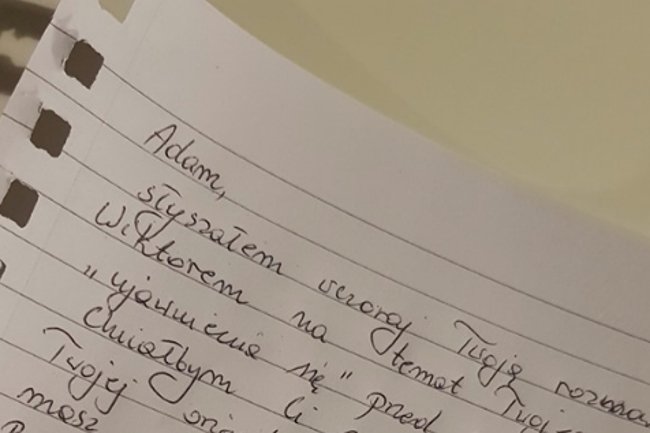 Adam,
słyszałem wczoraj Twoją
Wiktorem na temat
„ujawnienia się" przed
Chciałbym Ci
Twojej
masz